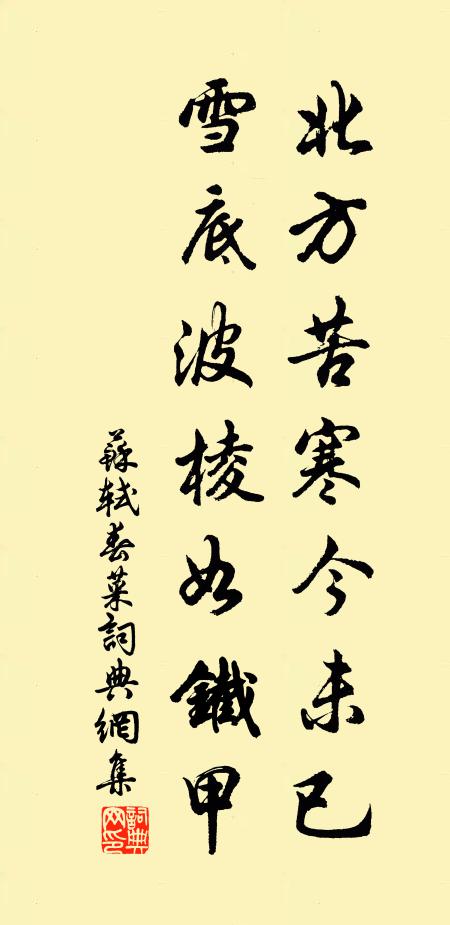 北方苦寒今未已
雪底波棱如鐵甲
蘇軾春菜詞典網集
詞典网印